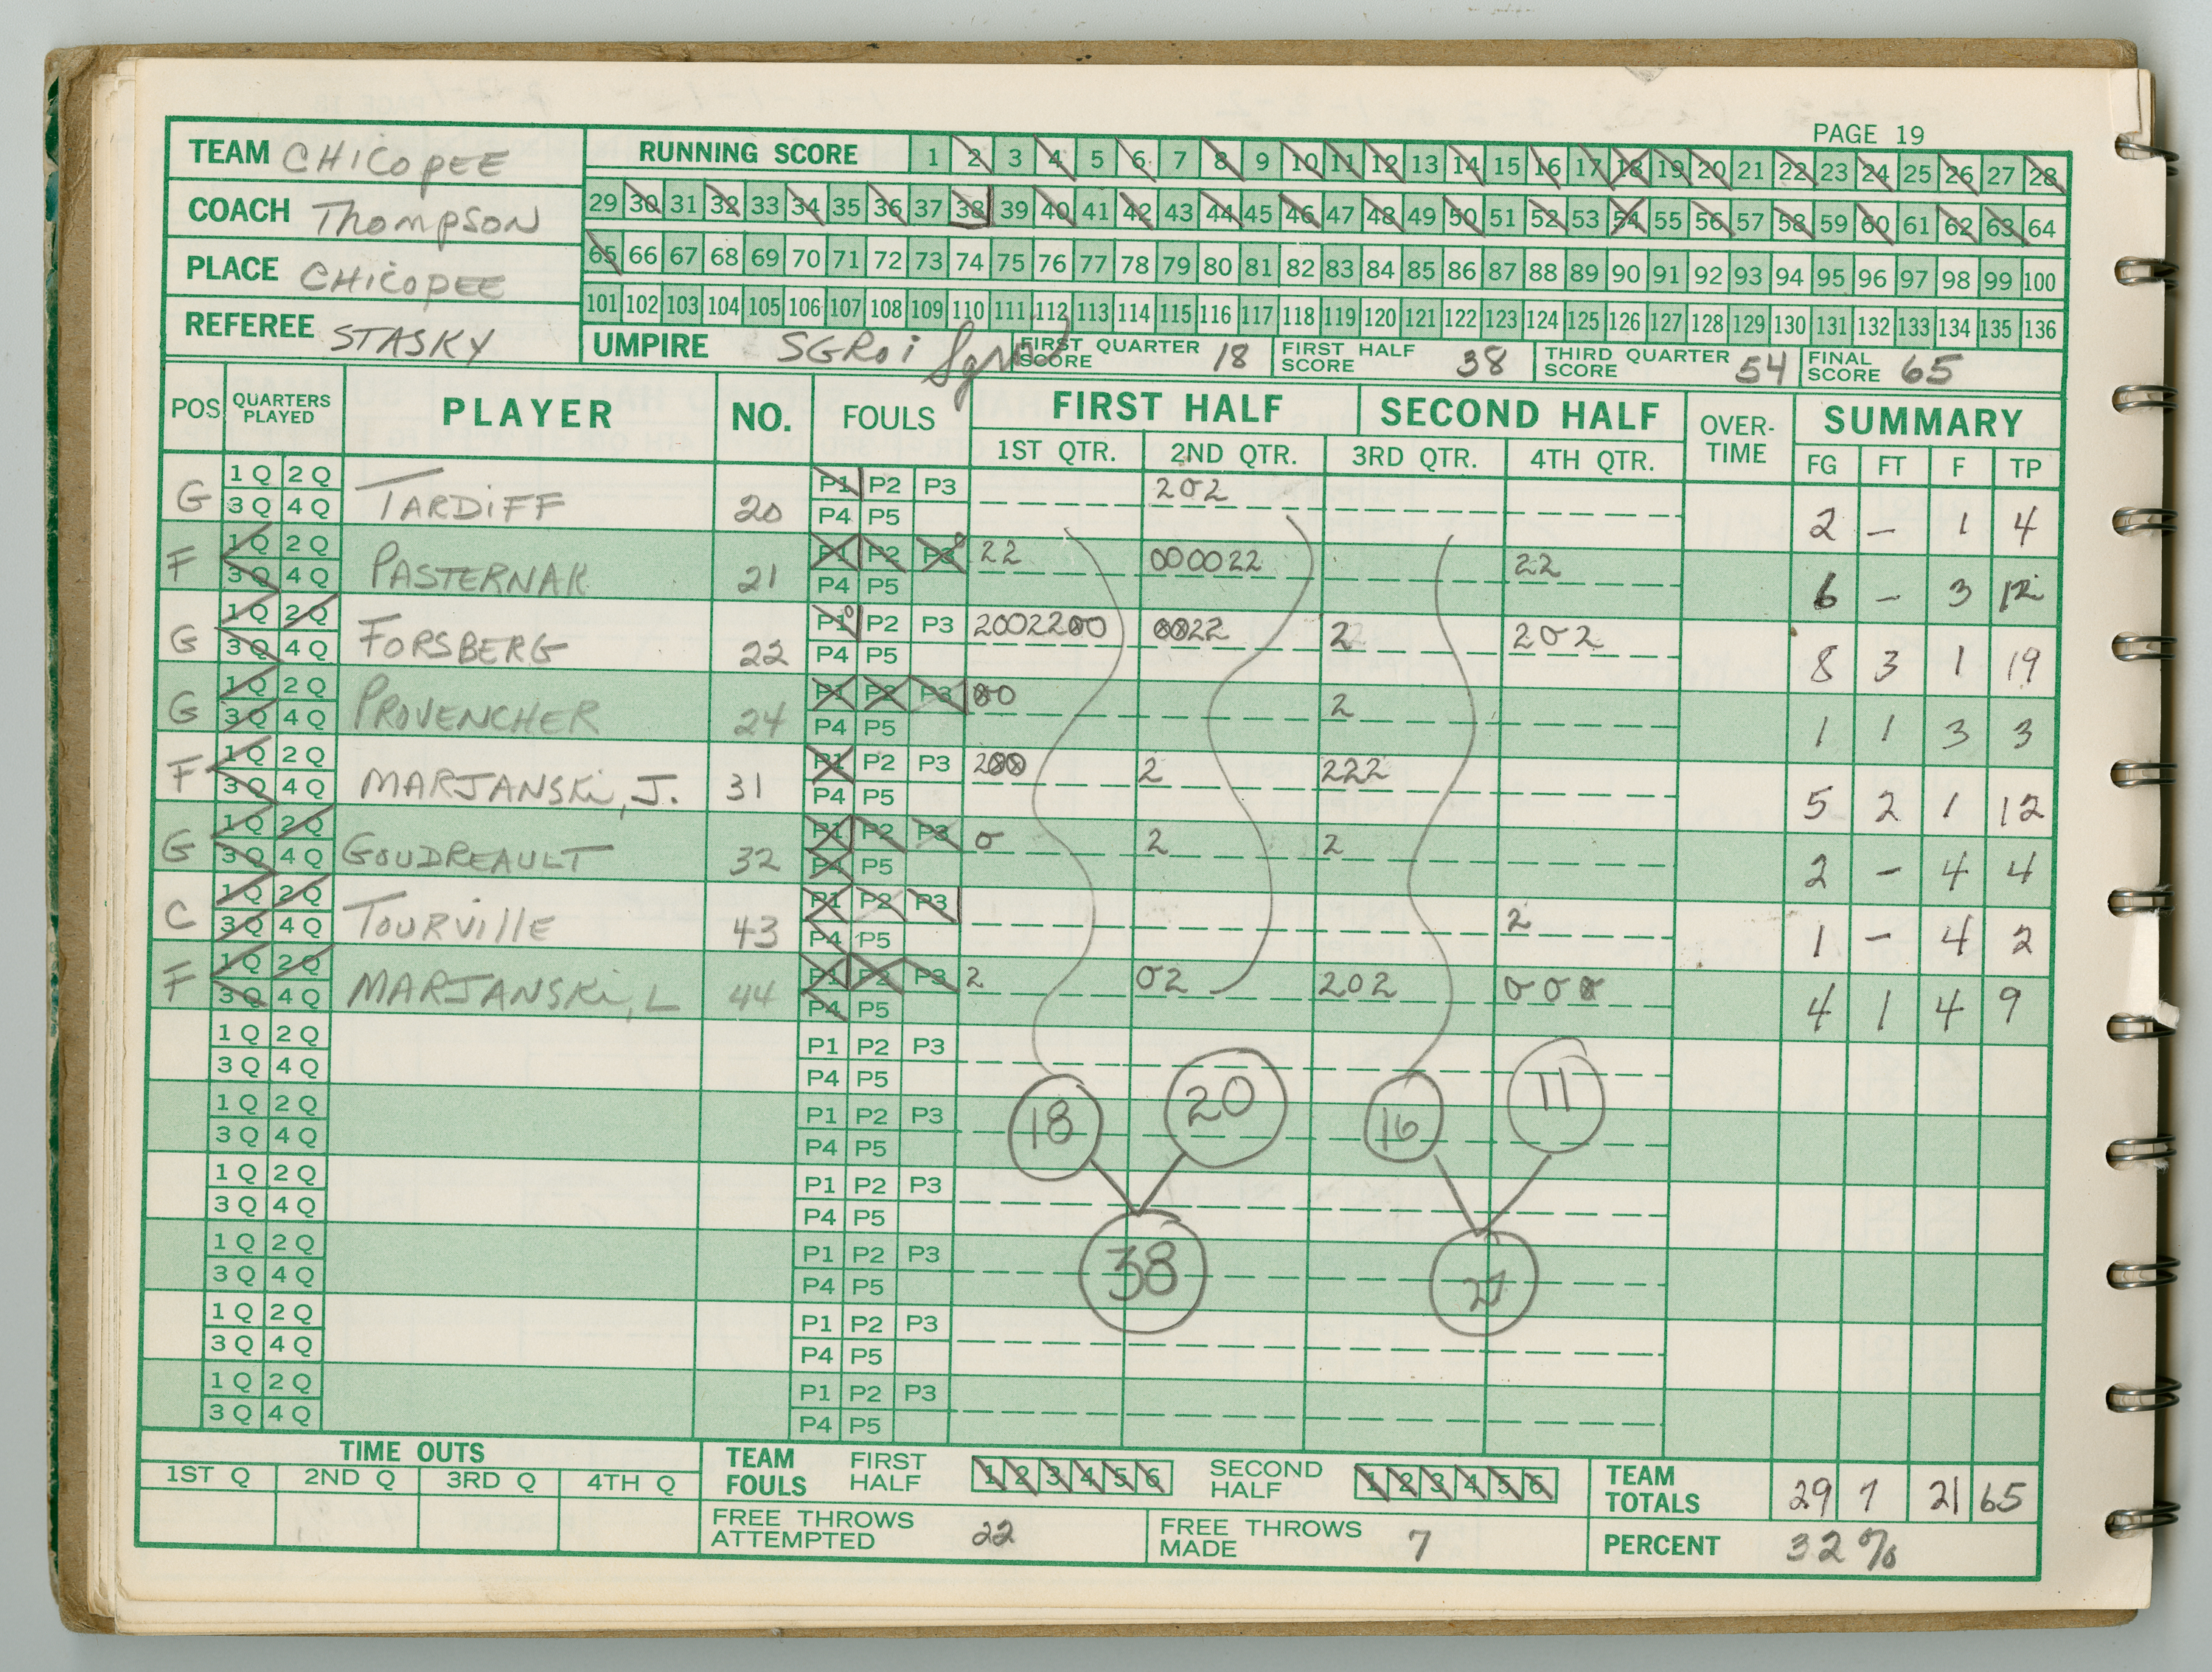 PAGE 19
TEAM CHICOPEE
COACH Thompson
PLACE CHICOPEE
REFEREE STASKY
RUNNING SCORE 1 2 3 4 5 6 7 8 9 10 11 12 13 14 15 16 17 18 19 20 21 22 23 24 25 26 27 28
29 30 31 32 33 34 35 36 37 38 39 40 41 42 43 44 45 46 47 48 49 50 51 52 53 54 55 56 57 58 59 60 61 62 63 64
65 66 67 68 69 70 71 72 73 74 75 76 77 78 79 80 81 82 83 84 85 86 87 88 89 90 91 92 93 94 95 96 97 98 99 100
101 102 103 104 105 106 107 108 109 110 111 112 113 114 115 116 117 118 119 120 121 122 123 124 125 126 127 128 129 130 131 132 133 134 135 136
UMPIRE SGROi FIRST QUARTER SCORE 18 FIRST HALF SCORE 38 THIRD QUARTER SCORE 54 FINAL SCORE 65
POS QUARTERS PLAYED PLAYER NO. FOULS FIRST HALF SECOND HALF OVER-TIME SUMMARY
1ST QTR. 2ND QTR. 3RD QTR. 4TH QTR. FG FT F TP
G 1Q 2Q 3Q 4Q TARDIFF 20 P1 P2 P3 P4 P5 202 2 – 1 4
F 1Q 2Q 3Q 4Q PASTERNAK 21 P1 P2 P3 P4 P5 22 000022 22 6 – 3 12
G 1Q 2Q 3Q 4Q FORSBERG 22 P1 P2 P3 P4 P5 2002200 0022 2 202 8 3 1 19
G 1Q 2Q 3Q 4Q PROVENCHER 24 P1 P2 P3 P4 P5 00 2 1 1 3 3
F 1Q 2Q 3Q 4Q MARJANSKi, J. 31 P1 P2 P3 P4 P5 200 2 222 5 2 1 12
G 1Q 2Q 3Q 4Q GOUDREAULT 32 P1 P2 P3 P4 P5 0 2 2 2 – 4 4
C 1Q 2Q 3Q 4Q TOURVille 43 P1 P2 P3 P4 P5 2 1 – 4 2
F 1Q 2Q 3Q 4Q MARJANSKi, L 44 P1 P2 P3 P4 P5 2 02 202 000 4 1 4 9
1Q 2Q 3Q 4Q P1 P2 P3 P4 P5
1Q 2Q 3Q 4Q P1 P2 P3 P4 P5
18 20 16 11
1Q 2Q 3Q 4Q P1 P2 P3 P4 P5
1Q 2Q 3Q 4Q P1 P2 P3 P4 P5
38 27
1Q 2Q 3Q 4Q P1 P2 P3 P4 P5
1Q 2Q 3Q 4Q P1 P2 P3 P4 P5
TIME OUTS
1ST Q 2ND Q 3RD Q 4TH Q
TEAM FOULS FIRST HALF 1 2 3 4 5 6 SECOND HALF 1 2 3 4 5 6 TEAM TOTALS 29 7 21 65
FREE THROWS ATTEMPTED 22 FREE THROWS MADE 7 PERCENT 32%